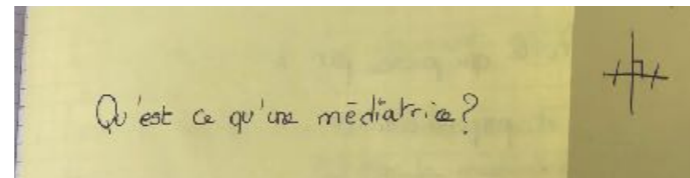 Qu'est ce qu'une médiatrice?